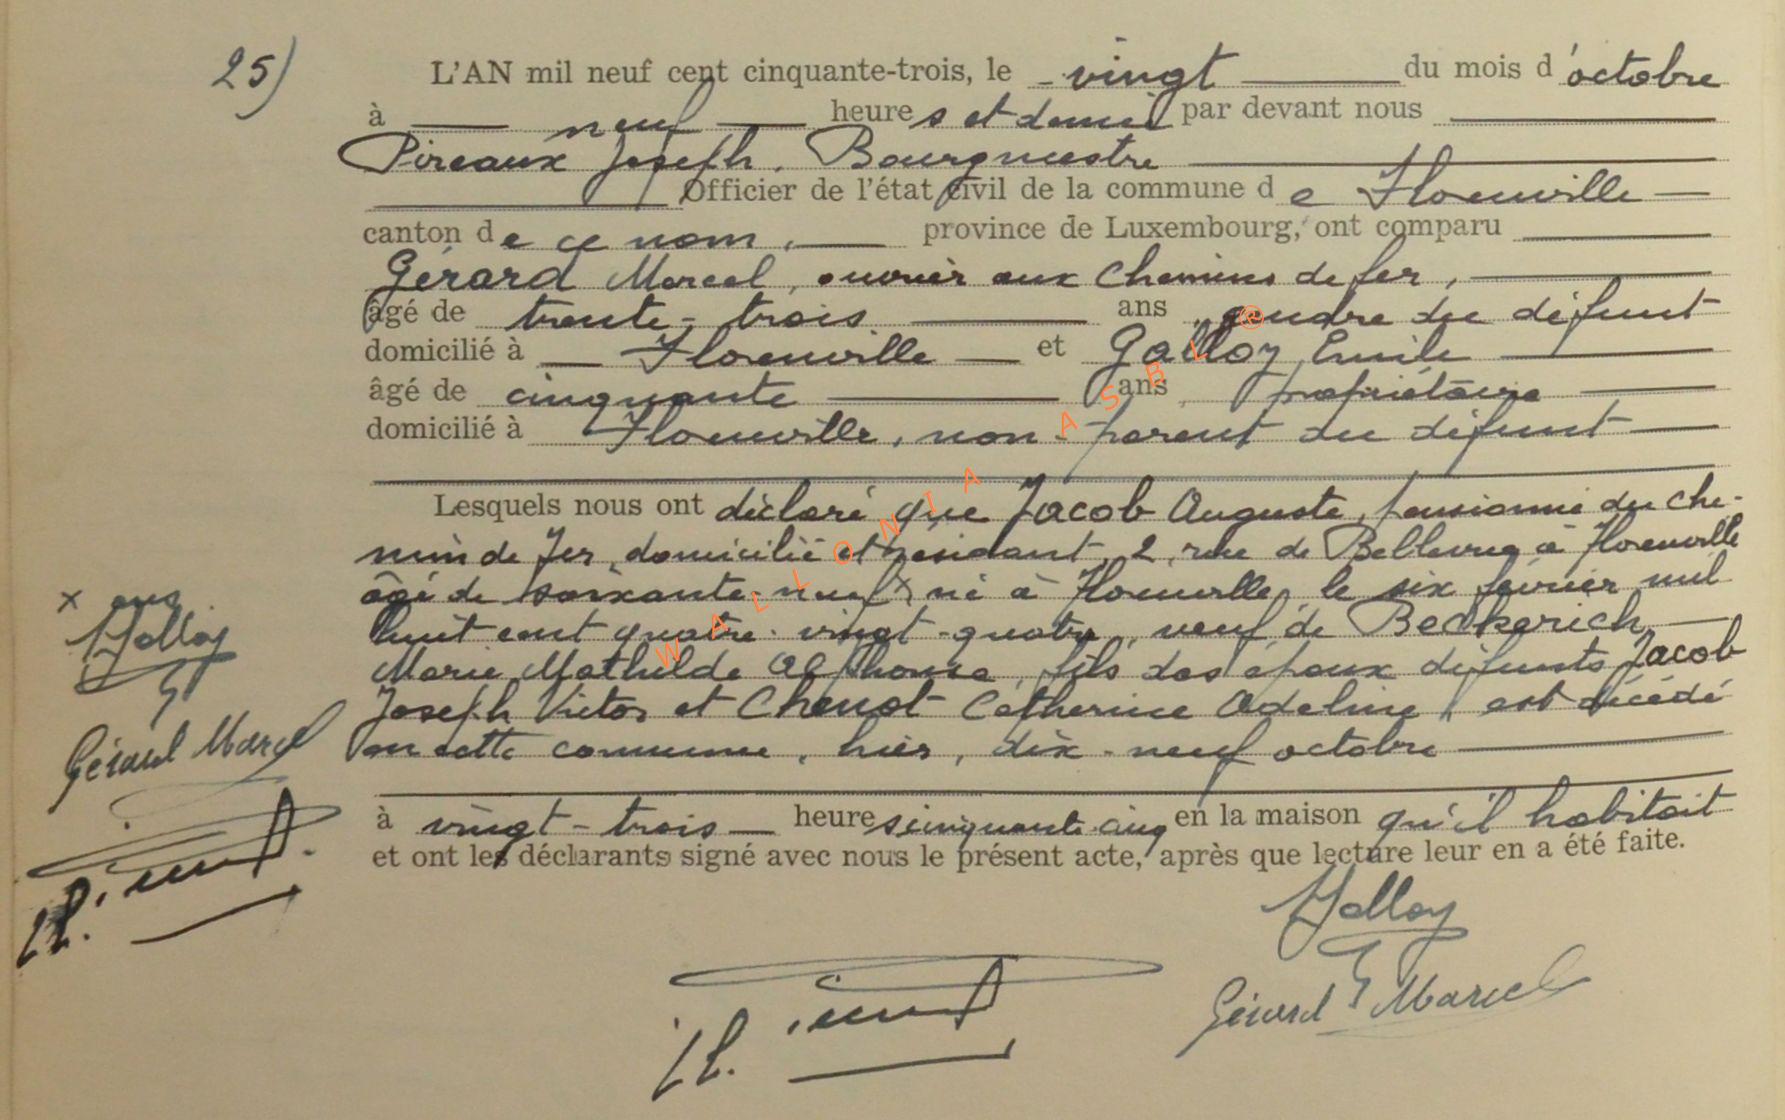 25)
L'AN mil neuf cent cinquante-trois, le vingt du mois d'octobre
à neuf heures et demie par devant nous
Pireaux Joseph, Bourgmestre
Officier de l'état civil de la commune de Florenville
canton de ce nom, province de Luxembourg, ont comparu
Gérard Marcel, ouvrier aux Chemins de fer,
âgé de trente-trois ans gendre du défunt
domicilié à Florenville et Galloy Emile
âgé de cinquante ans, propriétaire
domicilié à Florenville, non-parent du défunt
Lesquels nous ont déclaré que Jacob Auguste, pensionné du che-
min de fer, domicilié et résidant, 2, rue de Bellevue à Florenville
âgé de soixante-neuf x né à Florenville, le six février mil
huit cent quatre-vingt-quatre, veuf de Beckerich
Marie Mathilde Alphonse, fils des époux défunts Jacob
Joseph Victor et Chenot Catherine Adeline, est décédé
en cette commune, hier, dix-neuf octobre
à vingt-trois heures cinquante cinq en la maison qu'il habitait
et ont les déclarants signé avec nous le présent acte, après que lecture leur en a été faite.
x ans
Galloy
Gérard Marcel
Galloy
Gérard Marcel
WALLONIA ASBL ®